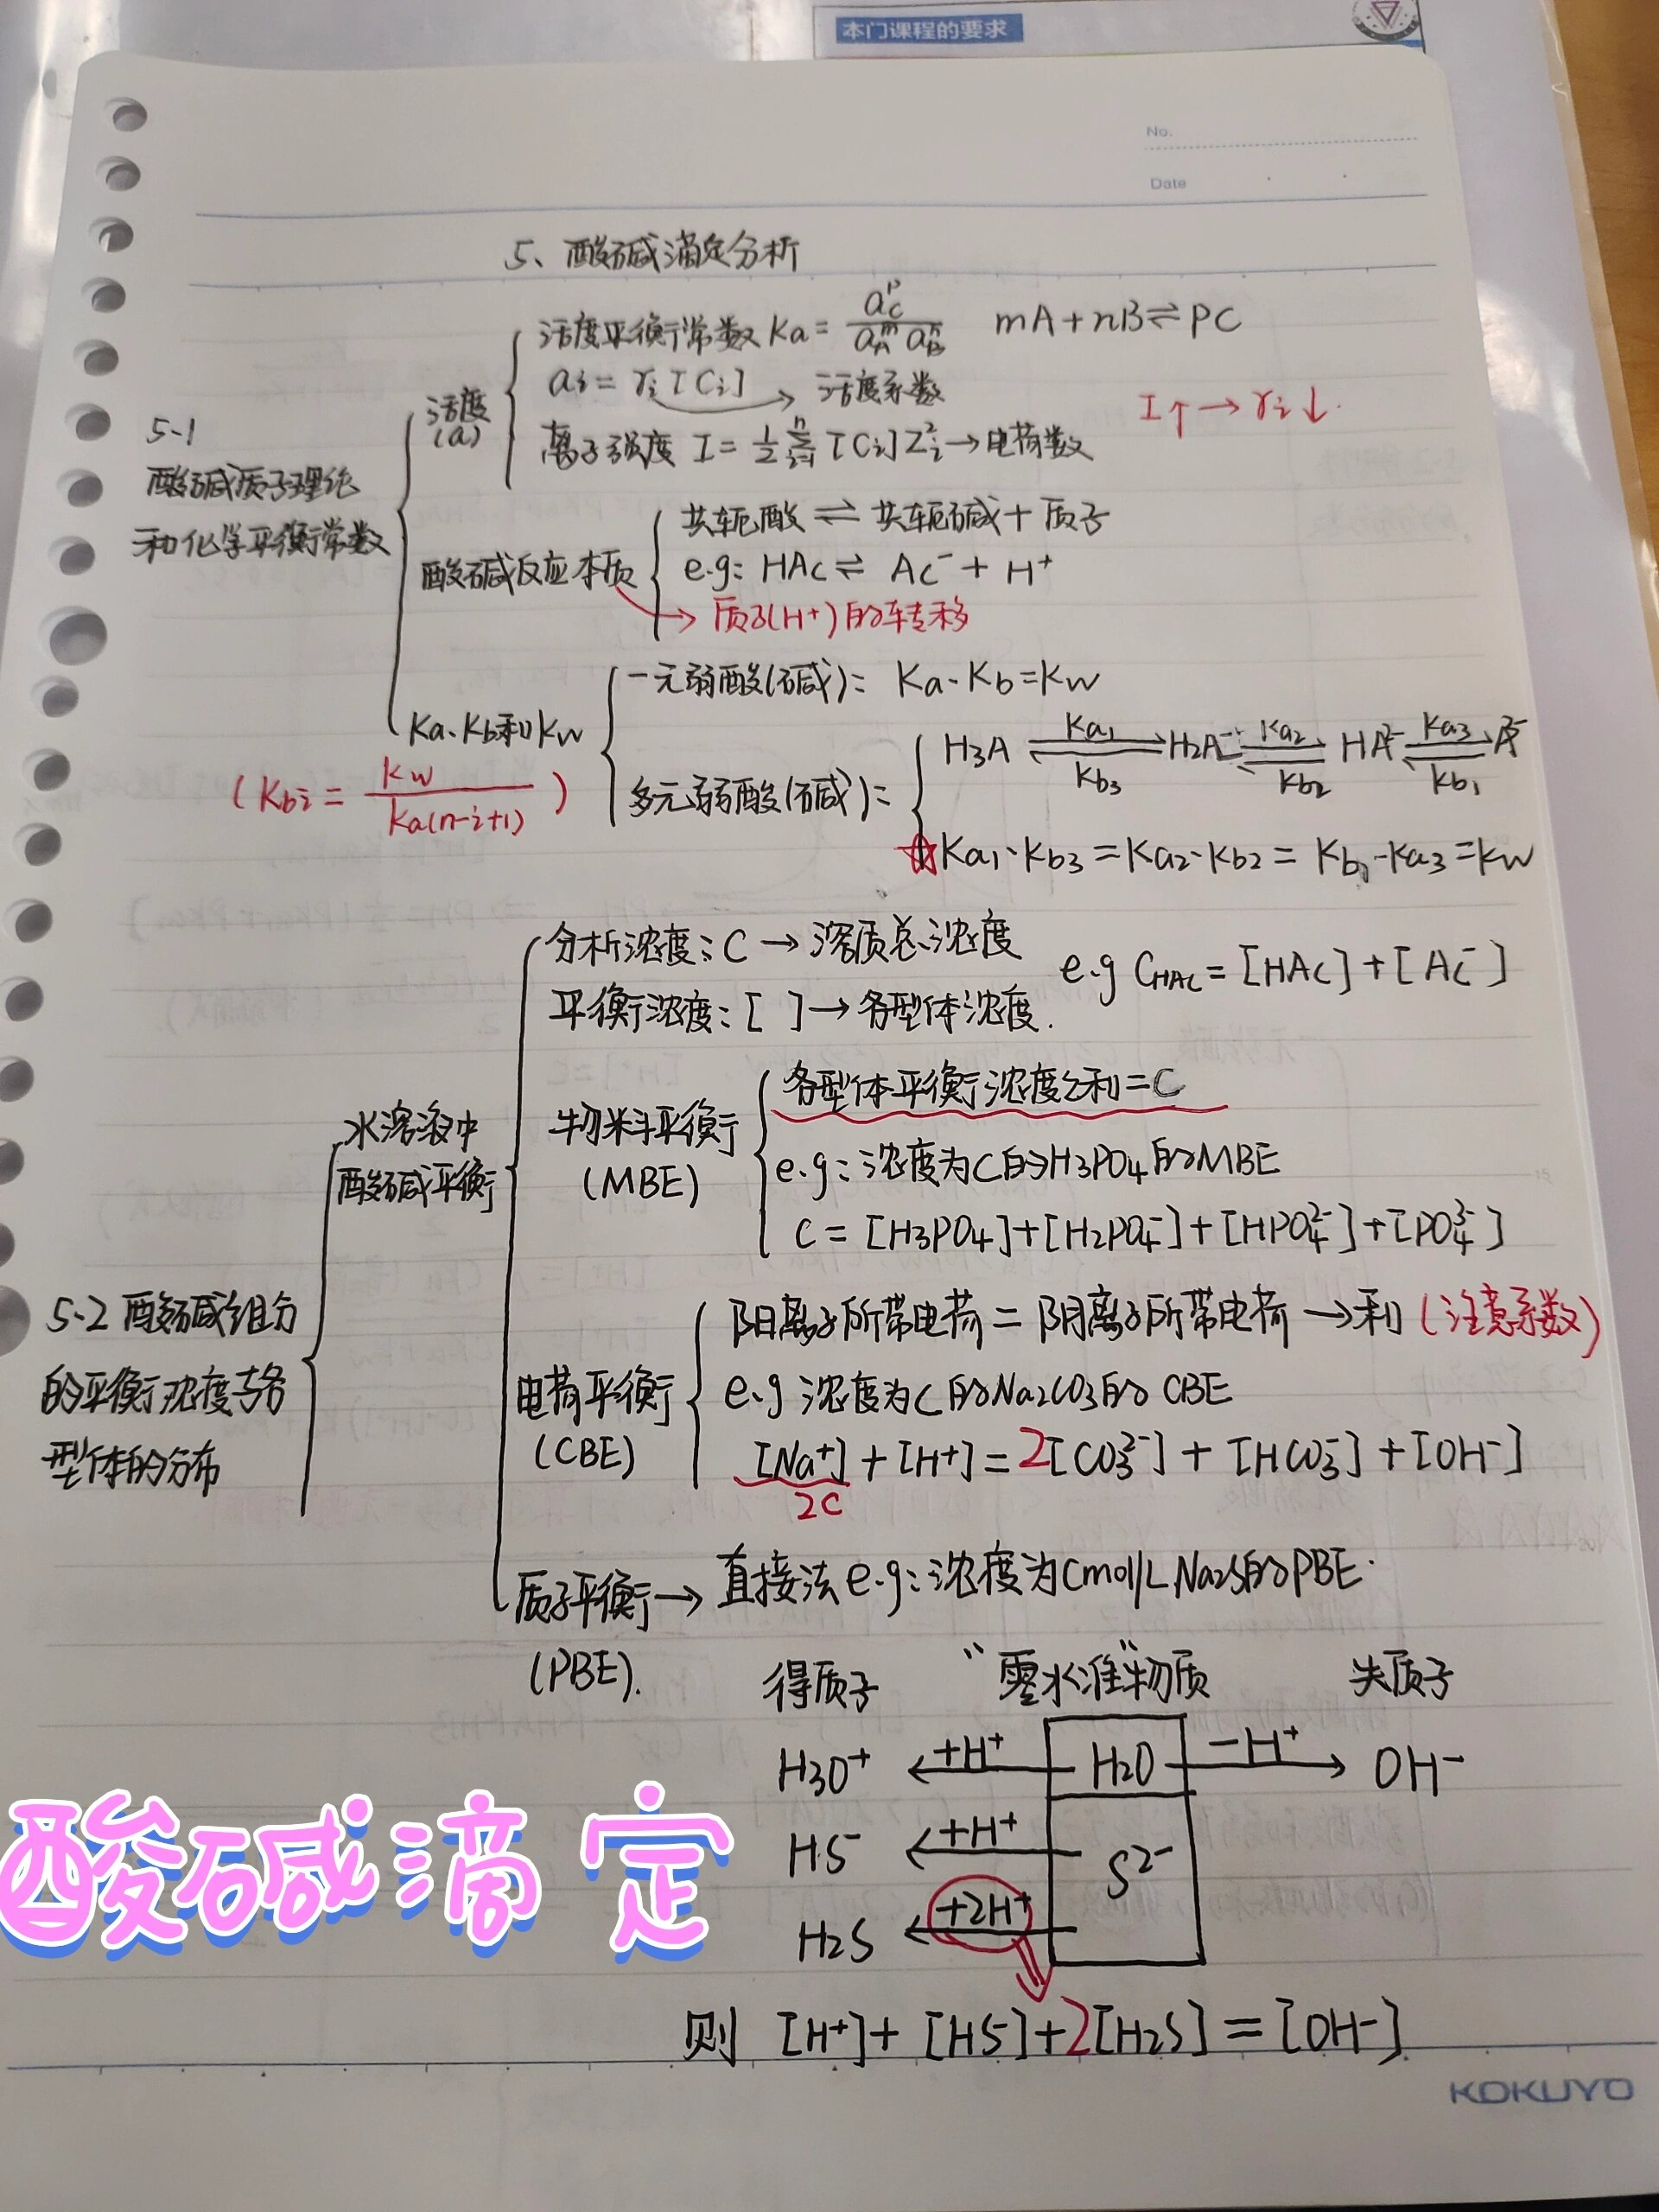 本门课程的要求
No.
Date
5、酸碱滴定分析
5-1
酸碱质子理论
和化学平衡常数
活度
(a)
活度平衡常数 Ka = a_C^P / a_A^m a_B^n  mA + nB ⇌ PC
ai = γi [Ci] → 活度系数
离子强度 I = 1/2 Σ_{i=1}^n [Ci] Zi² → 电荷数
I↑ → γi↓.
酸碱反应本质
共轭酸 ⇌ 共轭碱 + 质子
e.g: HAc ⇌ Ac⁻ + H⁺
→ 质子(H+)的转移
Ka、Kb和Kw
(Kbi = Kw / Ka(n-i+1))
一元弱酸(碱): Ka·Kb=Kw
多元弱酸(碱):
H3A ⇌ H2A⁻ ⇌ HA²⁻ ⇌ A³⁻
Ka1 Ka2 Ka3
Kb3 Kb2 Kb1
☆Ka1·Kb3 = Ka2·Kb2 = Kb1·Ka3 = Kw
5-2 酸碱组分
的平衡浓度与各
型体的分布
水溶液中
酸碱平衡
分析浓度: C → 溶质总浓度
平衡浓度: [ ] → 各型体浓度.
e.g CHAc = [HAc] + [Ac⁻]
物料平衡
(MBE)
各型体平衡浓度之和=C
e.g: 浓度为C的H3PO4的MBE
C = [H3PO4]+[H2PO4⁻]+[HPO4²⁻]+[PO4³⁻]
电荷平衡
(CBE)
阳离子所带电荷 = 阴离子所带电荷 → 和 (注意系数)
e.g 浓度为C的Na2CO3的CBE
[Na⁺] + [H⁺] = 2[CO3²⁻] + [HCO3⁻] + [OH⁻]
2C
质子平衡 → 直接法 e.g: 浓度为Cmol/L Na2S的PBE.
(PBE).
得质子 "零水准"物质 失质子
H3O⁺ ←+H⁺ H2O −H⁺→ OH⁻
HS⁻ ←+H⁺
S²⁻
H2S ←+2H⁺
则 [H⁺] + [HS⁻]+2[H2S] = [OH⁻]
酸碱滴定
KOKUYO